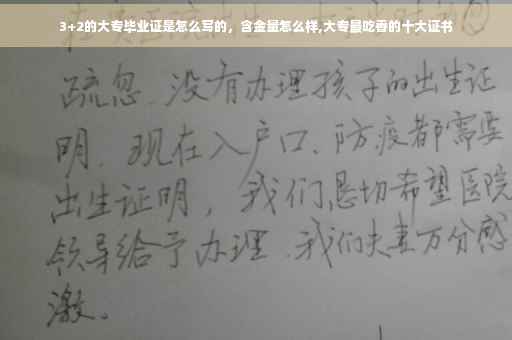 3+2的大专毕业证是怎么写的，含金量怎么样,大专最吃香的十大证书
疏忽.没有办理孩子的出生证
明.现在入户口、防疫都需要
出生证明，我们恳切希望医院
领导给予办理.我们夫妻万分感
激。